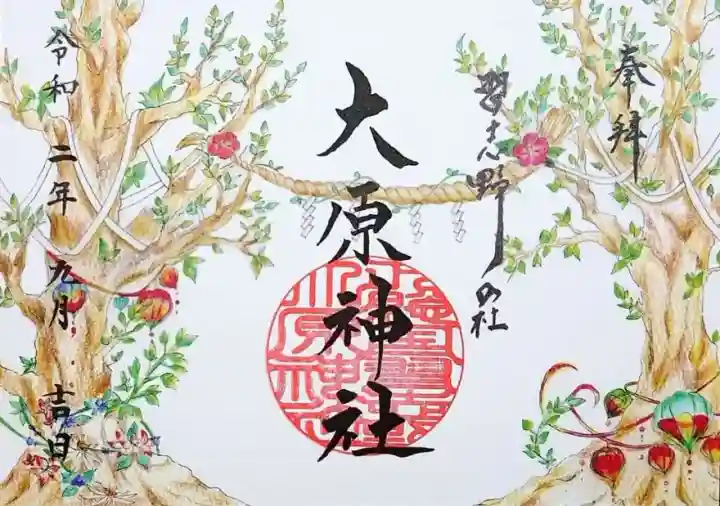 奉拝
習志野の社
大原神社
令和二年九月吉日